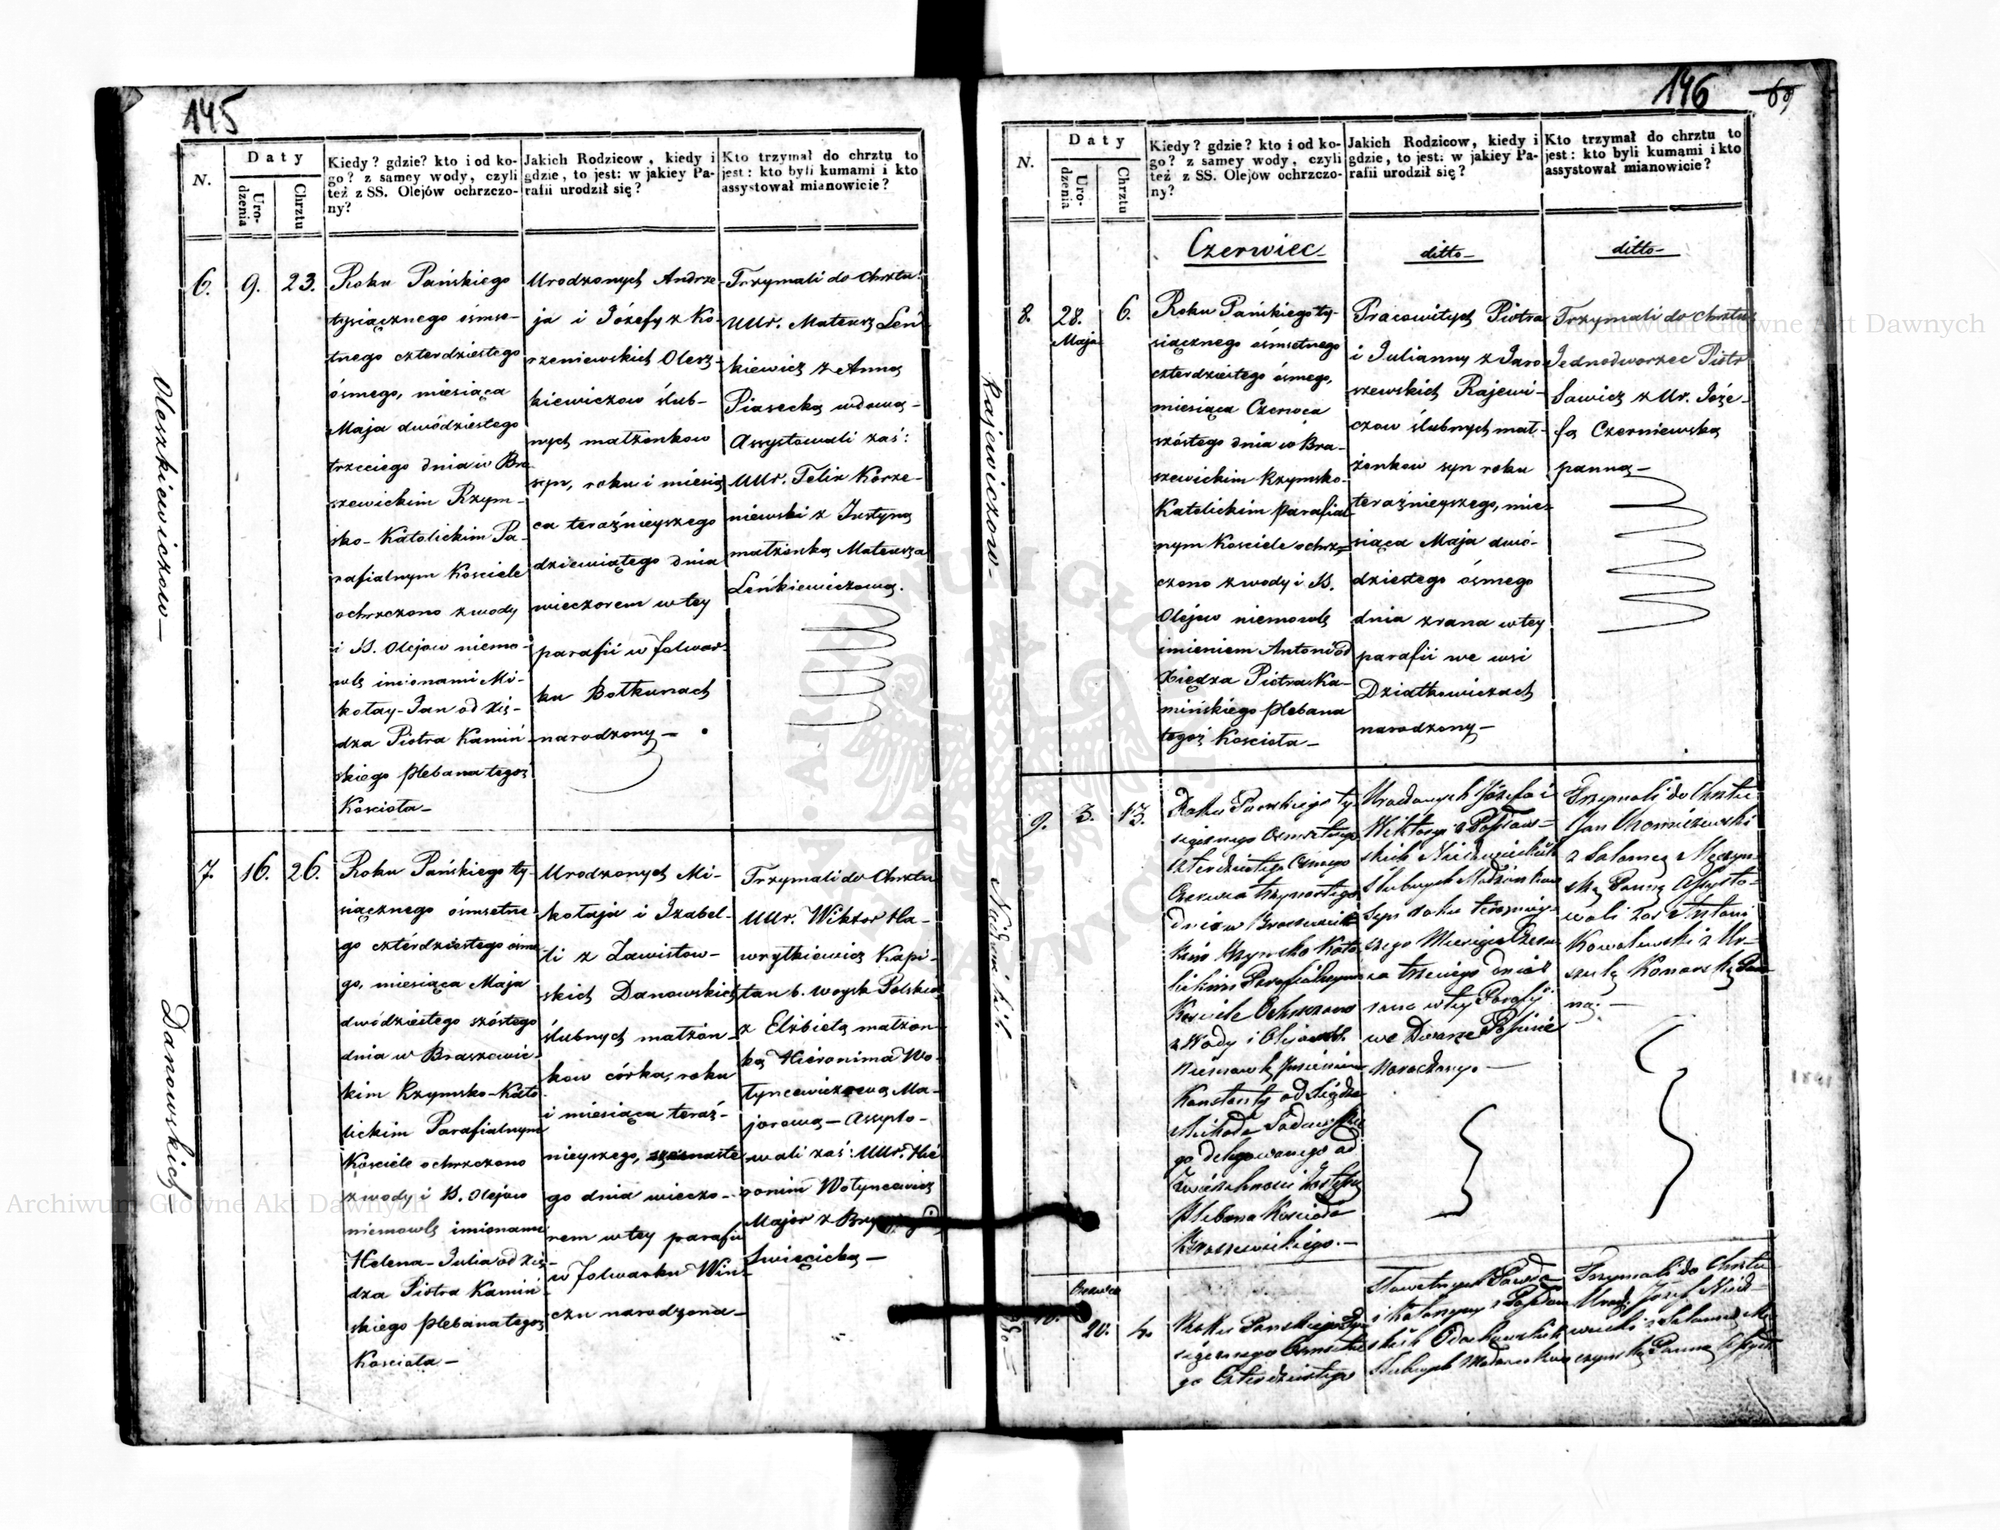 145
N.
Daty
Uro-
dzenia
Chrztu
Kiedy? gdzie? kto i od ko-
go? z samey wody, czyli
też z SS. Olejów ochrzczo-
ny?
Jakich Rodzicow, kiedy i
gdzie, to jest: w jakiey Pa-
rafii urodził się?
Kto trzymał do chrztu to
jest: kto byli kumami i kto
assystował mianowicie?
Oleszkiewiczow—
6.
9.
23.
Roku Pańskiego
tysiącznego ośmse-
tnego czterdziestego
ósmego, miesiąca
Maja dwódziestego
trzeciego dnia w Bra-
szewickim Rzym-
sko-Katolickim Pa-
rafialnym Kościele
ochrzczono z wody
i SS. Olejow niemo-
wlę imionami Mi-
kołay-Jan od Xię-
dza Piotra Kamiń-
skiego Plebana tegoż
Kościoła—
Urodzonych Andrze-
ja i Józefy z Ko-
rzeniewskich Olesz-
kiewiczow ślub-
nych małżonkow
syn, roku i miesią
ca teraźnieyszego
dziewiątego dnia
wieczorem w tey
parafii w folwar-
ku Bołkunach
narodzony—
Trzymali do Chrztu
UUr. Mateusz Leń-
kiewicz z Anną
Piasecką wdową—
Assystowali zaś:
UUr. Felix Korze-
niewski z Justyną
małżonką Mateusza
Leńkiewiczową.
Danowskich—
7.
16.
26.
Roku Pańskiego ty-
siącznego ośmsetne-
go czterdziestego ósme
go, miesiąca Maja
dwódziestego szóstego
dnia w Braszewic-
kim Rzymsko-Kato
lickim Parafialnym
Kościele ochrzczono
z wody i SS. Olejow
niemowlę imionami
Helena-Julia od Xię-
dza Piotra Kamiń-
skiego Plebana tegoż
Kościoła—
Urodzonych Mi-
kołaja i Izabel-
li z Zawistow-
skich Danowskich
ślubnych małżon-
kow córka, roku
i miesiąca teraź-
nieyszego, szesnaste
go dnia wieczo-
rem w tey parafii
w folwarku Win-
czu narodzona—
Trzymali do Chrztu
UUr. Wiktor Ha-
wryłkiewicz Kapi-
tan b. woysk Polskich
z Elżbietą małżon-
ką Hieronima Wo-
łyncewiczową Ma-
jorową—Assysto-
wali zaś: UUr. Hie
ronim Wołyncewicz
Major z
Swięcicką—
146
69
N.
Daty
Uro-
dzenia
Chrztu
Kiedy? gdzie? kto i od ko-
go? z samey wody, czyli
też z SS. Olejów ochrzczo-
ny?
Jakich Rodzicow, kiedy i
gdzie, to jest: w jakiey Pa-
rafii urodził się?
Kto trzymał do chrztu to
jest: kto byli kumami i kto
assystował mianowicie?
Czerwiec—
ditto—
ditto—
Rajewiczow—
8.
28.
Maja
6.
Roku Pańskiego ty-
siącznego ośmsetnego
czterdziestego ósmego,
miesiąca Czerwca
szóstego dnia w Bra-
szewickim Rzymsko-
Katolickim Parafial
nym Kosciele ochrz-
czono z wody i SS.
Olejow niemowlę
imieniem Antoni od
Xiędza Piotra Ka-
mińskiego Plebana
tegoż Kościoła—
Pracowitych Piotra
i Julianny z Jaro
szewskich Rajewi-
czow ślubnych mał-
żonkow syn roku
teraźnieyszego, mie-
siąca Maja dwó-
dziestego ósmego
dnia z rana w tey
parafii we wsi
Dziatkowiczach
narodzony—
Trzymali do chrztu
Jednodworzec Piotr
Sawicz z Ur. Józe-
fą Czerniewską
panną—
9.
3.
13.
Roku Panskiego ty-
siącznego Osmsetnego
czterdziestego Osmego
Czerwca trzynastego
dnia w Braszewic
kim Rzymsko Kato
lickim Parafialnym
Kościele Ochrzczono
z Wody i Olejow SS.
Niemowlę Imieniem
Konstanty od Xiędza
go delegowanego od
Plebana Kościoła
Braszewickiego.—
Urodzonych Józefa i
Wiktoryi z Popław-
skich
Slubnych Małżonkow
Syn roku teraźniey-
szego Miesiąca Czerw
ca trzeciego dnia z
rana w tey Parafii
we Dworze
Narodzony—
Trzymali do Chrztu
Jan
z Salomeą Męczyń-
ską Panną Assysto-
wali zaś Antoni
Kowalewski z Ur-
szulą Konarską Pan
ną.—
10.
Czerwca
20.
4.
Roku Panskiego Ty
siącznego Osmsetne
go Czterdziestego
Sławetnych Pawła
i Katarzyny z
Slubnych Małżonkow
Trzymali do Chrztu
Urodz. Józef
z Salomeą Mę
czyńską Panną Assyst
Archiwum Główne Akt Dawnych
Archiwum Główne Akt Dawnych